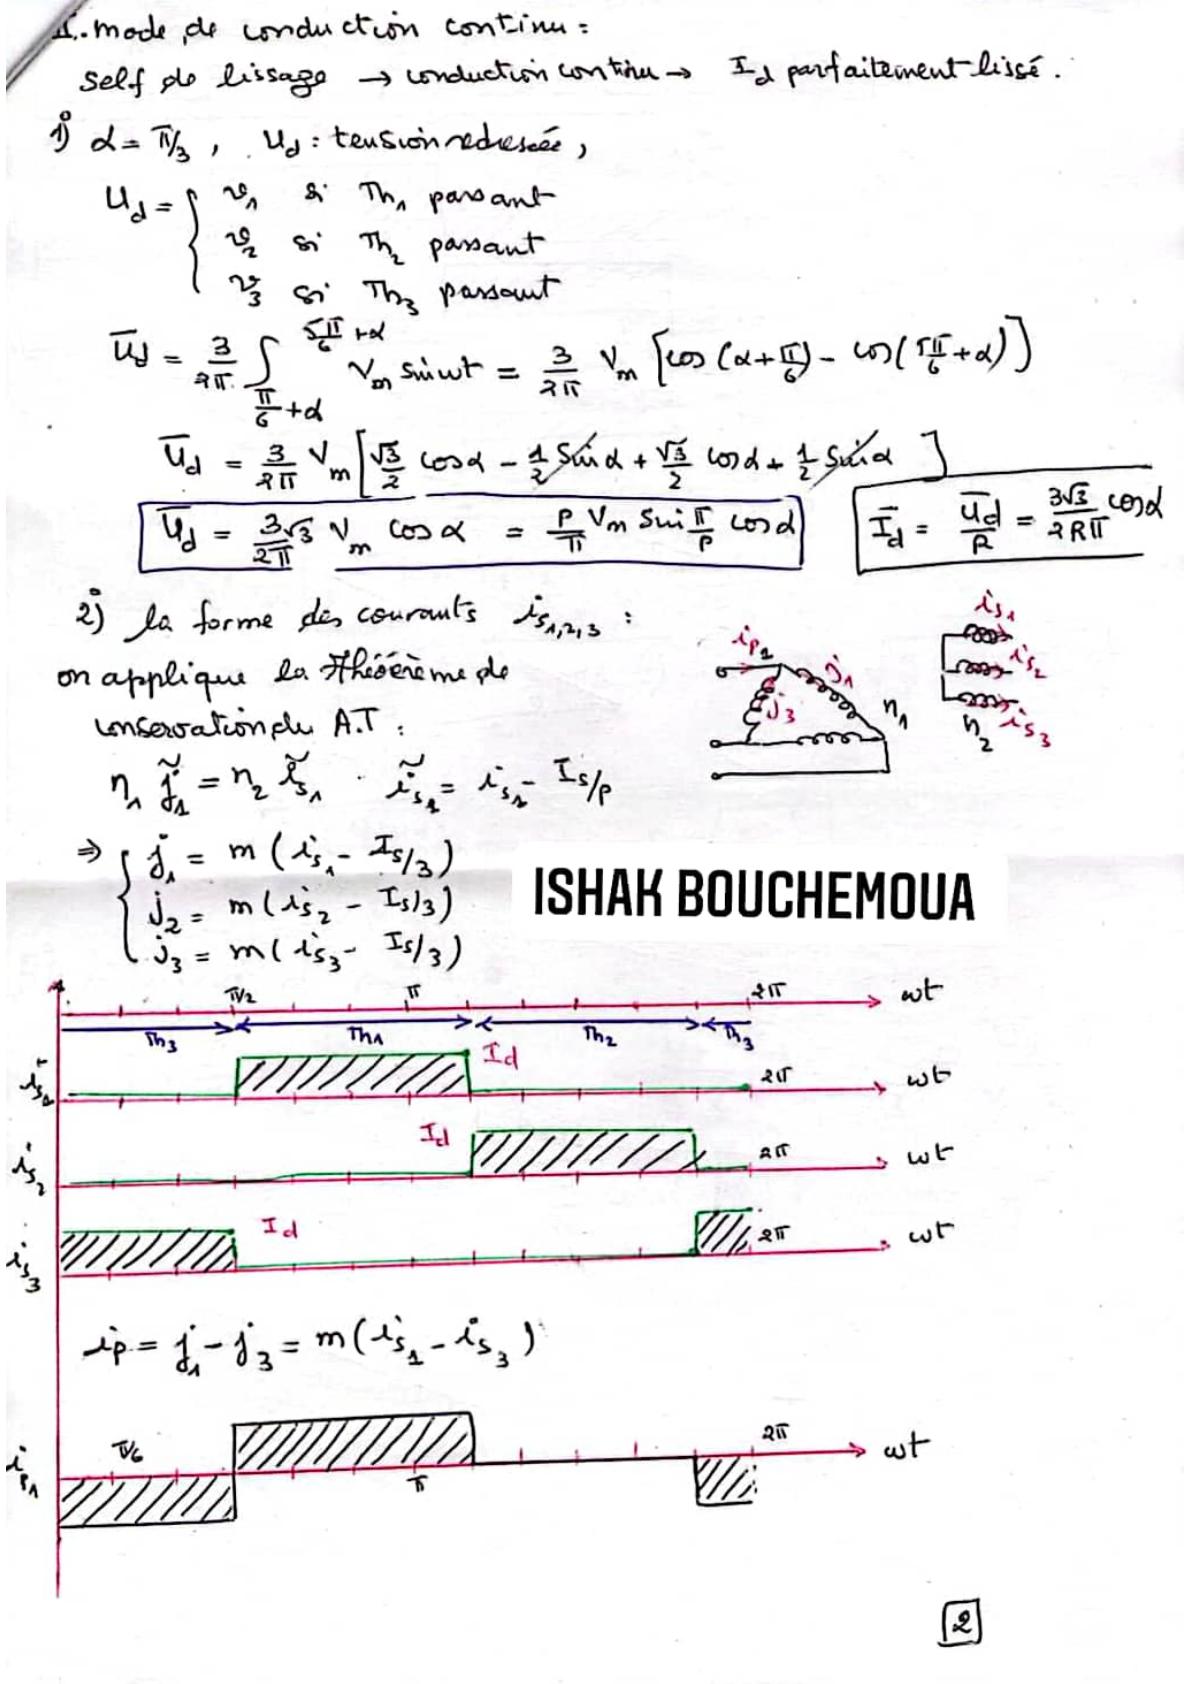 I. mode de conduction continu =
self de lissage → conduction continu → I_d parfaitement lissé.
1°) α = π/3 , U_d : tension redressée ,
U_d = { v_1 si Th_1 passant
v_2 si Th_2 passant
v_3 si Th_3 passant
U̅_d = 3/2π ∫_{π/6+α}^{5π/6+α} V_m sin wt = 3/2π V_m [cos(α+π/6) - cos(5π/6+α)]
U̅_d = 3/2π V_m [√3/2 cosα - 1/2 sinα + √3/2 cosα + 1/2 sinα]
U̅_d = 3√3/2π V_m cosα = P/π V_m sin π/P cosα
I̅_d = U̅_d/R = 3√3/2Rπ cosα
2°) la forme des courants i_{s1,2,3} :
on applique la théorème de
conservation du A.T :
i_{p1} j_1 j_3 n_1
i_{s1} i_{s2} i_{s3} n_2
n_1 j̃_1 = n_2 ĩ_{s1} . ĩ_{s1} = i_{s1} - I_s/p
⇒ { j_1 = m(i_{s1} - I_s/3)
j_2 = m(i_{s2} - I_s/3)
j_3 = m(i_{s3} - I_s/3)
ISHAK BOUCHEMOUA
π/2 π 2π wt
Th_3 Th_1 Th_2 Th_3
i_{s1} I_d 2π wt
i_{s2} I_d 2π wt
i_{s3} I_d 2π wt
i_p = j_1 - j_3 = m(i_{s1} - i_{s3})
i_{p1} π/6 π 2π wt
2